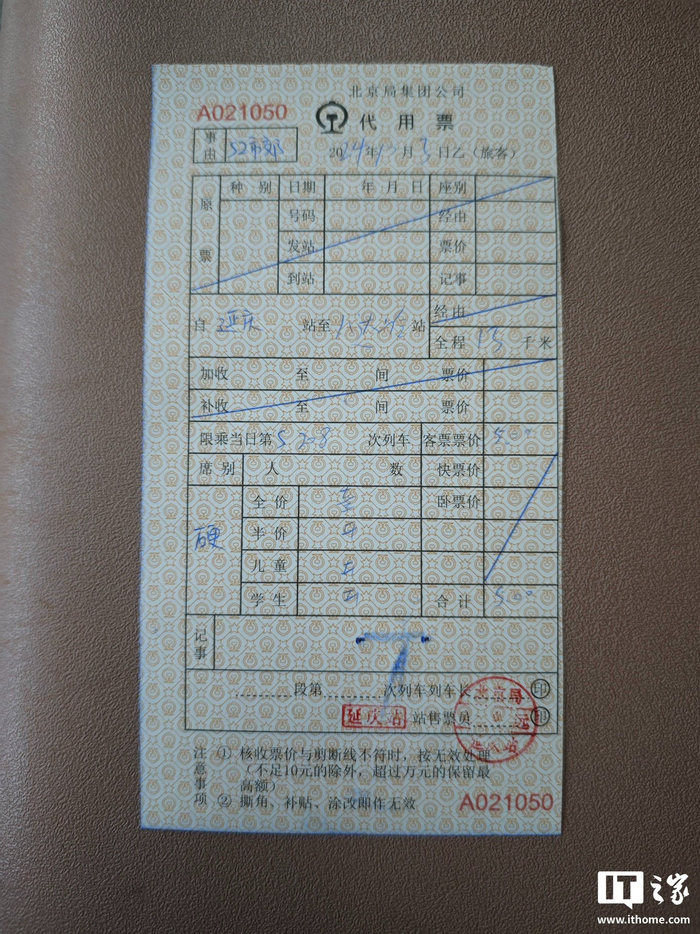 北京局集团公司
A021050
代用票
事由 S2市郊
2024年12月3日乙(旅客)
原票 种别 日期 年月日 座别
号码 经由
发站 票价
到站 记事
自延庆站至八达岭站 经由
全程13千米
加收 至 间 票价
补收 至 间 票价
限乘当日第S208次列车 客票票价 5.00
席别 人数 快票价
硬 全价 壹 卧票价
半价
儿童
学生 合计 5.00
记事
段第 次列车列车长 印
延庆站 站售票员 印
北京局
延庆站
注意事项 ① 核收票价与剪断线不符时,按无效处理
(不足10元的除外,超过万元的保留最
高额)
② 撕角、补贴、涂改即作无效
A021050
IT之家
www.ithome.com